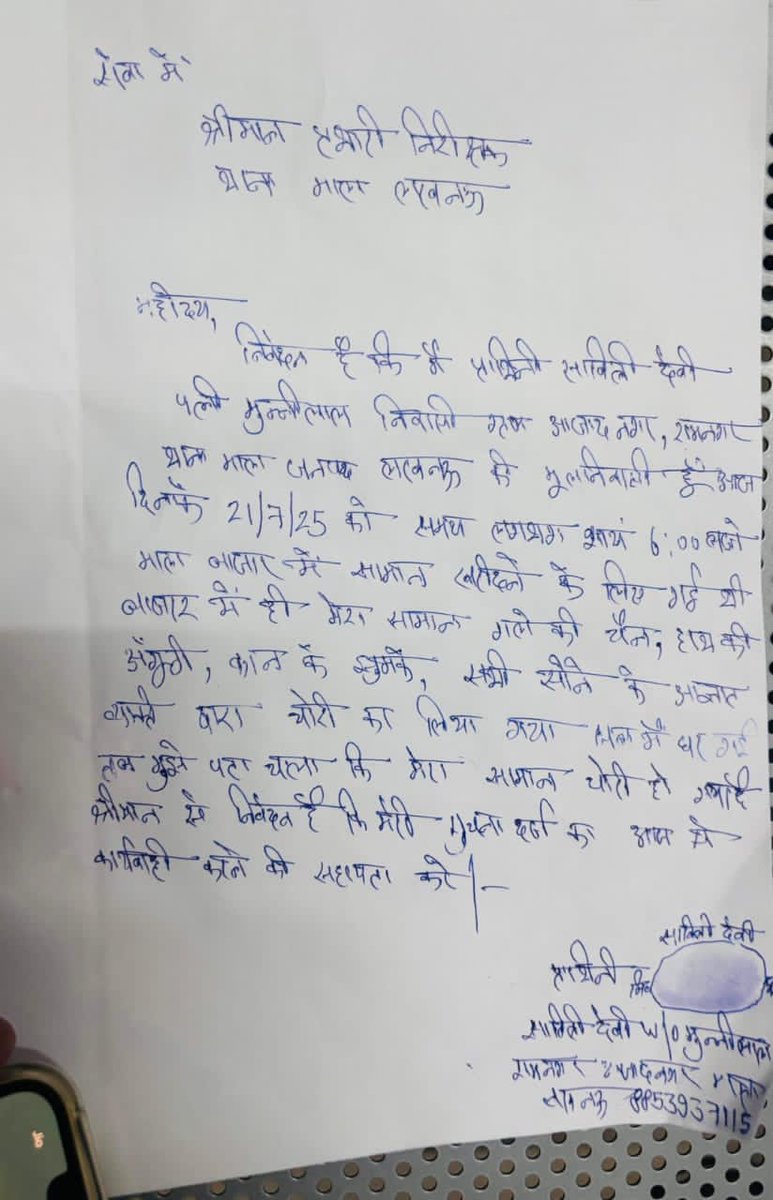 सेवा में
श्रीमान प्रभारी निरीक्षक
थाना माल लखनऊ
महोदय,
निवेदन है कि मैं प्रार्थिनी सावित्री देवी
पत्नी मुन्नीलाल निवासी ग्राम आजाद नगर, रामनगर
थाना माल जनपद लखनऊ की मूलनिवासी हूँ आज
दिनाँक 21/7/25 को समय लगभग सायं 6:00 बजे
माल बाजार में सामान खरीदने के लिए गई थी
बाजार में ही मेरा सामान गले की चैन, हाथ की
अंगूठी, कान के झुमके, सभी सोने के अज्ञात
व्यक्ति द्वारा चोरी कर लिया गया जब मैं घर गई
तब मुझे पता चला कि मेरा सामान चोरी हो गया है
श्रीमान से निवेदन है कि मेरी सूचना दर्ज कर आगे की
कार्यवाही करने की सहायता करें।-
सावित्री देवी
प्रार्थिनी
सावित्री देवी W/O मुन्नीलाल
रामनगर आजादनगर माल
लखनऊ 8853937115